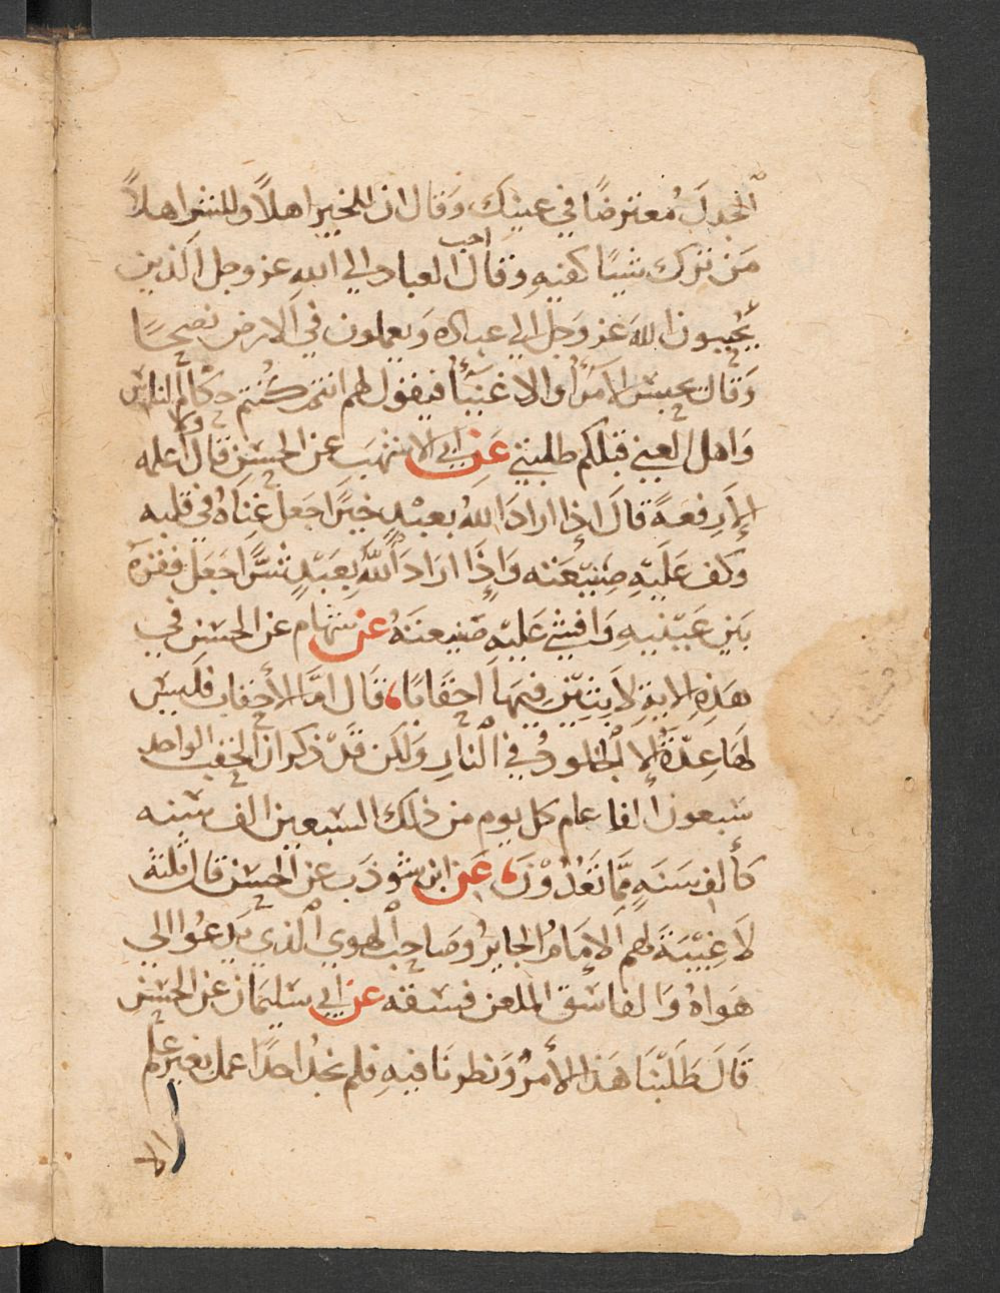 الجدل معترضا في عينك وقال ان للخير اهلا وللشر اهلا
من ترك شيئا كفيه وقال احب العباد الي الله عز وجل الذين
يحببون الله عز وجل الي عباده ويعملون في الارض نصحا
وقال يحبس الامرا والاغنيا فيقول لهم انتم كنتم حكام الناس
واهل الغني قبلكم طلبتي عن ابي الاشهب عن الحسن قال اعلمه ولا
الا رفعه قال اذا اراد الله بعبد خيرا جعل غناه في قلبه
وكف عليه ضيعته واذا اراد الله بعبد شرا جعل فقره
بين عينيه وافشي عليه ضيعته عن هشام عن الحسن في
هذه الاية لابثين فيها احقابا، قال اما الاحقاب فليس
لها عدة الا الخلود في النار ولكن قد ذكر ان الحقب الواحد
سبعون الفا عام كل يوم من ذلك السبعين الف سنه
كألف سنة مما تعدون، عن ابن شوذب عن الحسن قال ثلثة
لا غيبة لهم الامام الجاير وصاحب الهوي الذي يدعوا الي
هواه والفاسق الملعن فسقه عن ابي سليمان عن الحسن
قال طلبنا هذا الأمر ونظرنا فيه فلم نجد احدا عمل بغير علم
الا